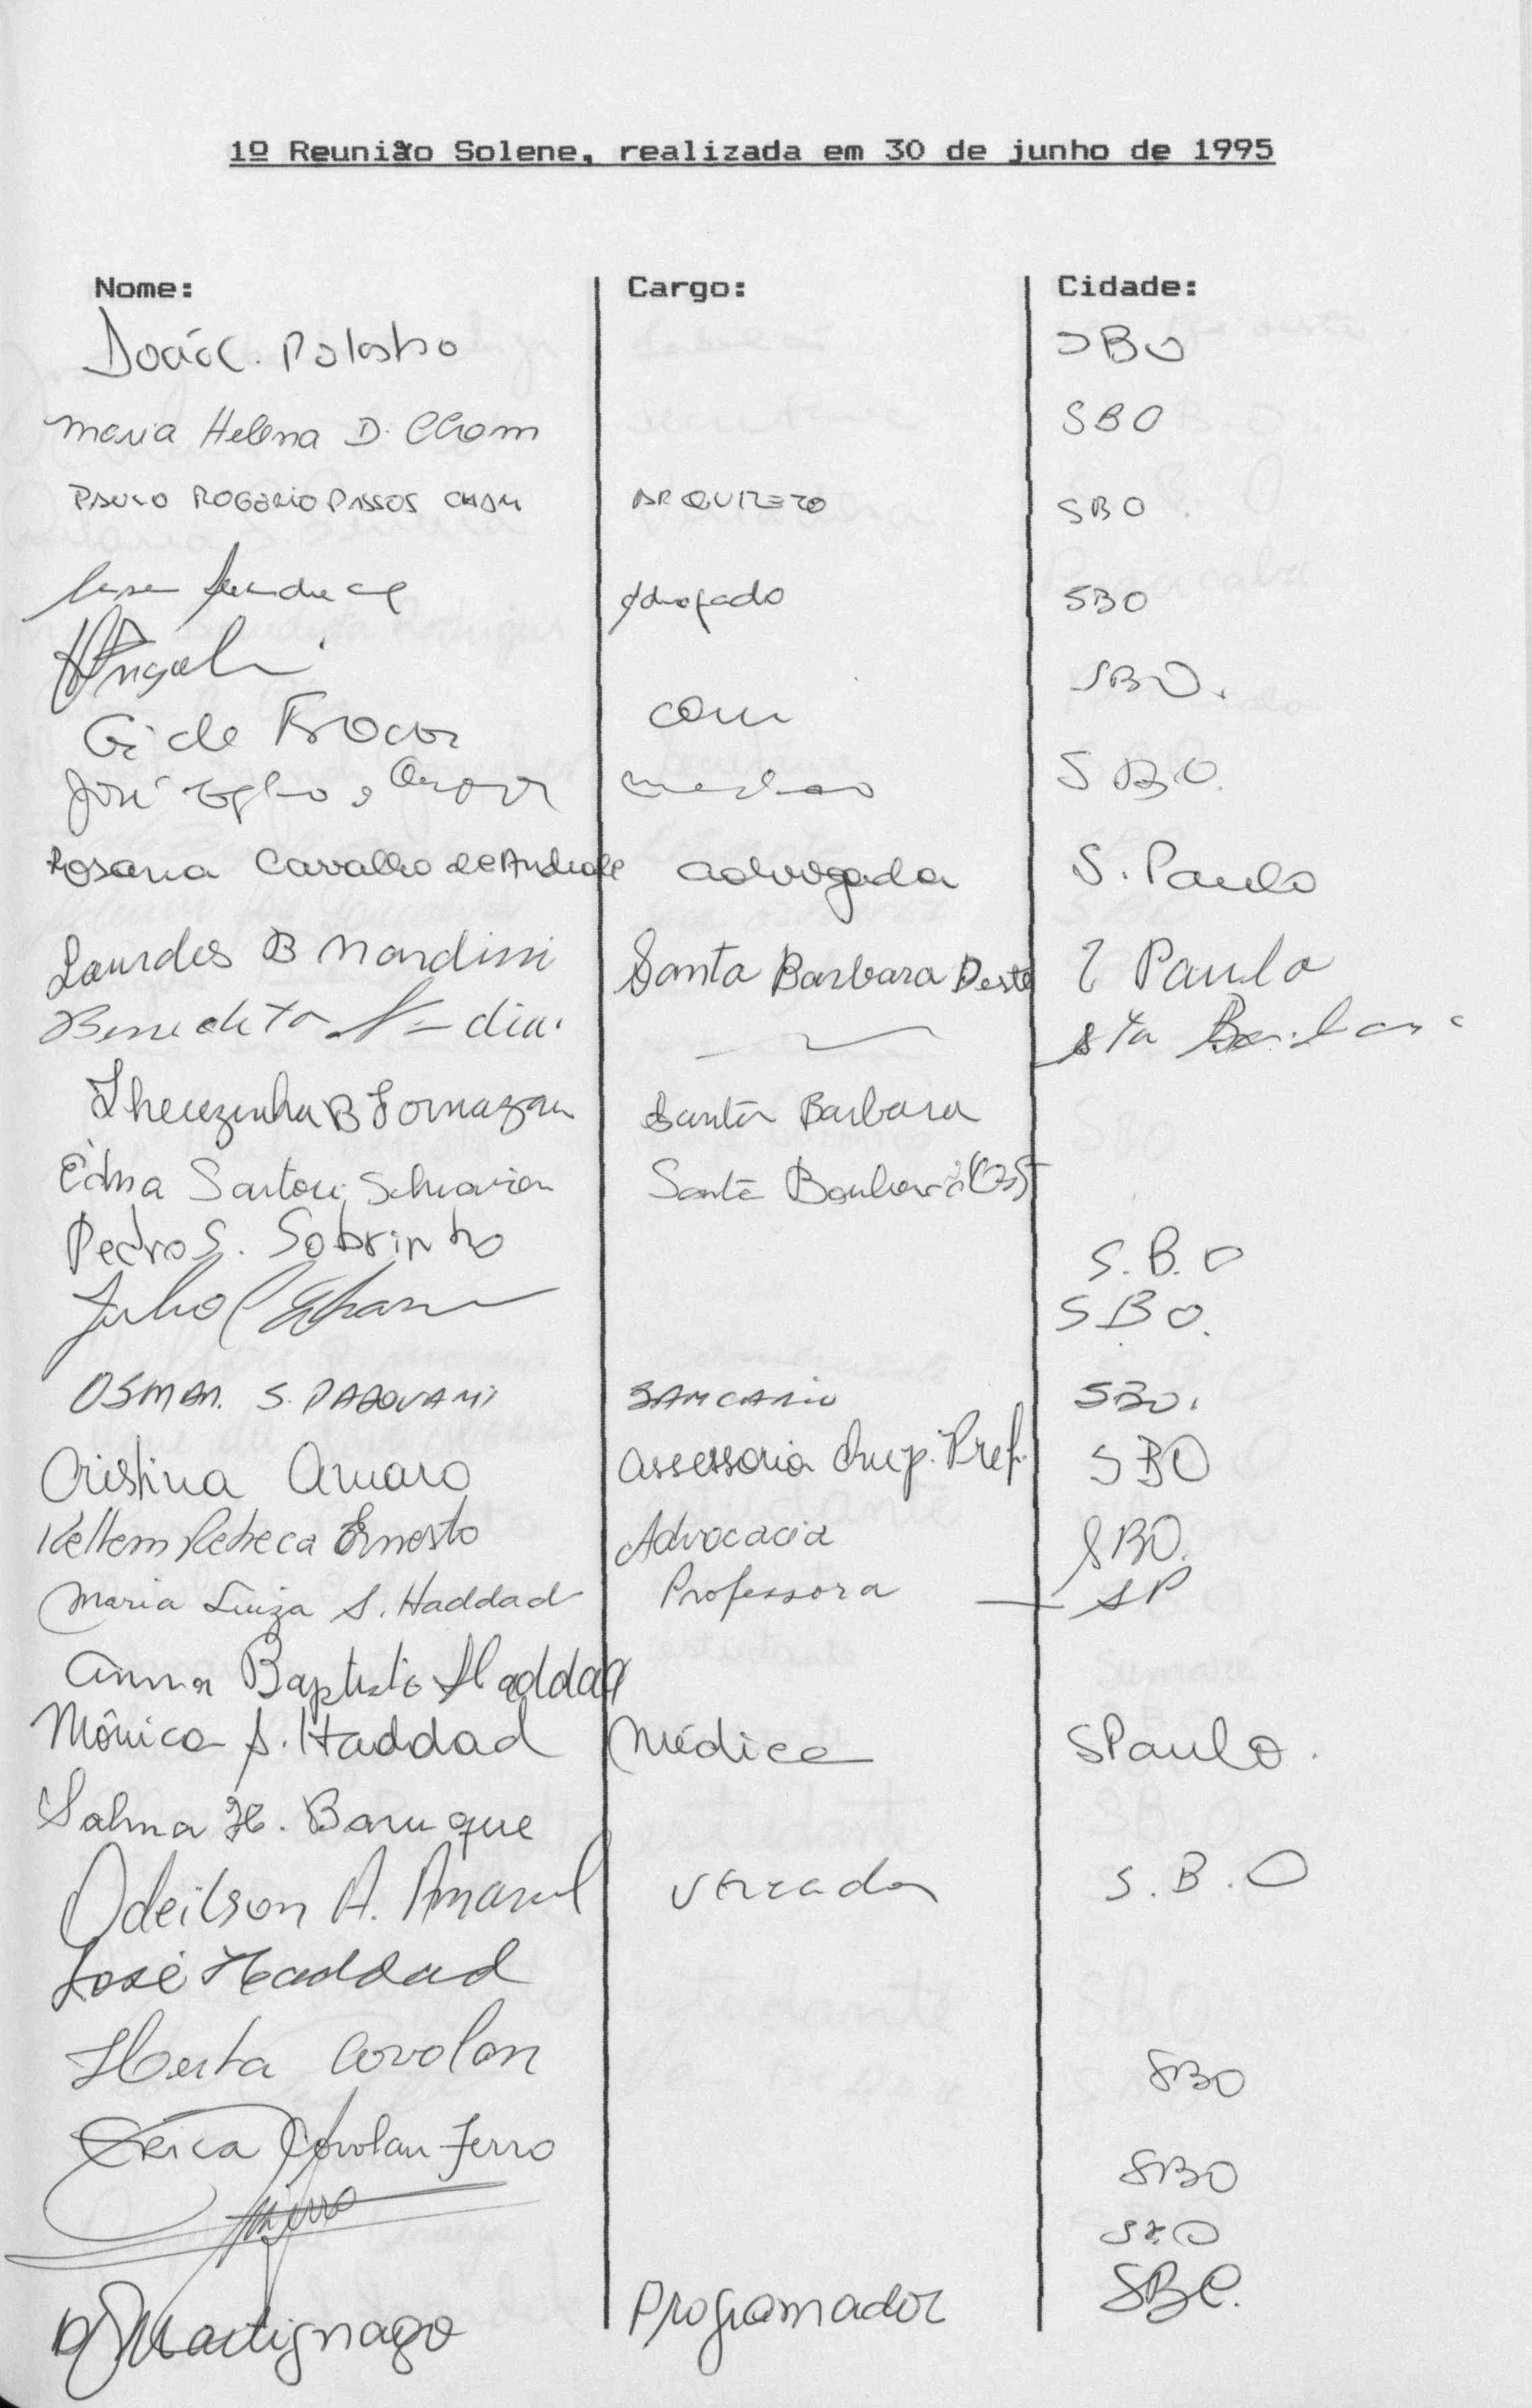 1º Reunião Solene, realizada em 30 de junho de 1995
Nome: Cargo: Cidade:
SBO
Maria Helena D. Cham SBO
PAULO ROGERIO PASSOS CHAM ARQUITETO SBO
Advogado SBO
SBO.
Gi de
José SBO.
Rosana Carvalho de Andrade advogada S. Paulo
Lourdes B Nardini Santa Barbara Deste S Paulo
Benedito Sta Barbara
Therezinha B Fornazari Santa Barbara
Edna Sartori Santa Barbara
Pedro S. Sobrinho S.B.O
Julio SBO.
OSMAR. S. PADOVANI BANCARIO SBO.
Cristina Amaro Assessoria Imp. Pref. SBO
Kellem Rebeca Ernesto Advocacia SBO.
Maria Luiza S. Haddad Professora — SP
Anna Baptista Haddad
Mônica S. Haddad Médica SPaulo.
Salma H. Baruque
Odeilson A. Amaral Vereador S.B.O
José Haddad
Herta Covolan SBO
Érica Covolan Ferro SBO
Ferro SBO
Martignago Programador